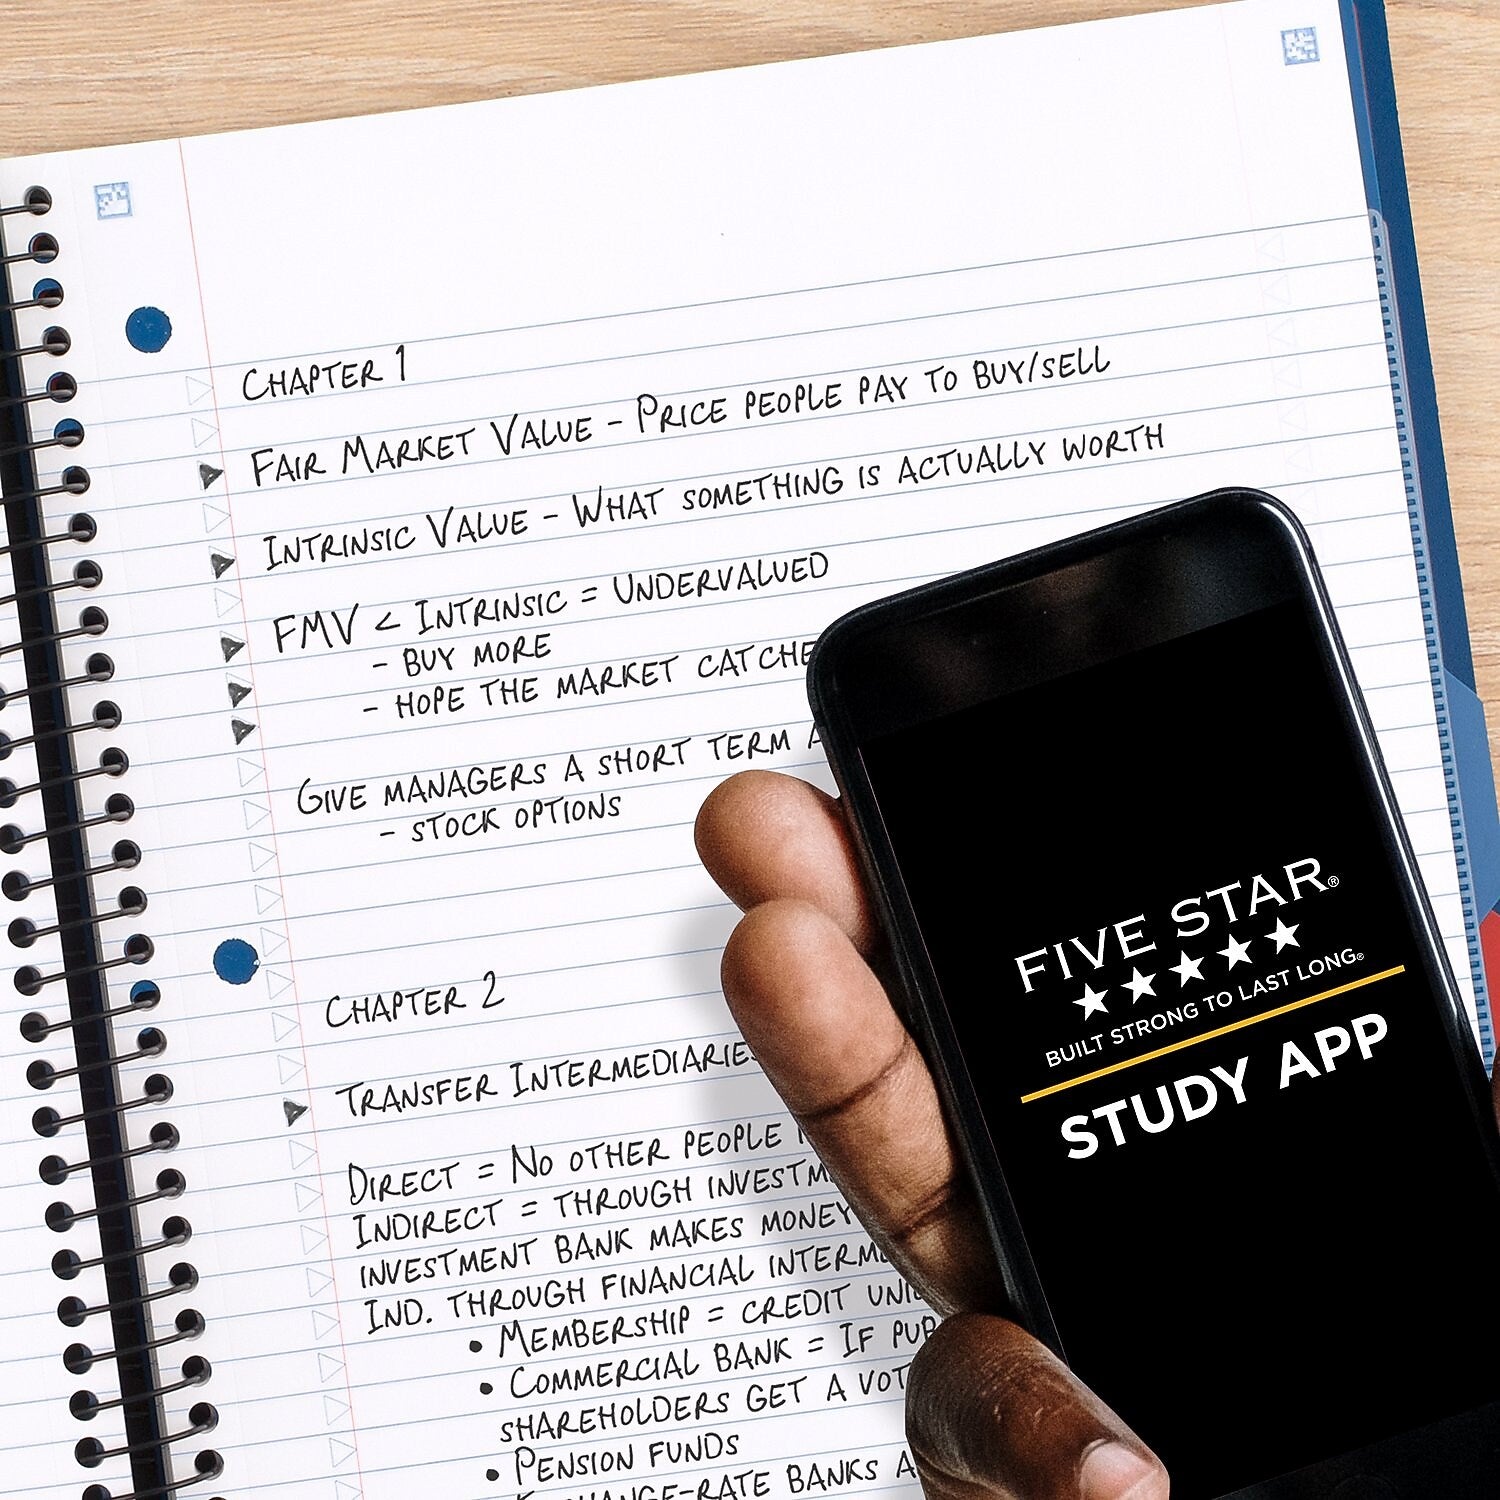 CHAPTER 1
FAIR MARKET VALUE - PRICE PEOPLE PAY TO BUY/SELL
INTRINSIC VALUE - WHAT SOMETHING IS ACTUALLY WORTH
FMV < INTRINSIC = UNDERVALUED
- BUY MORE
- HOPE THE MARKET CATCHE
GIVE MANAGERS A SHORT TERM
- STOCK OPTIONS
CHAPTER 2
TRANSFER INTERMEDIARIES
DIRECT = NO OTHER PEOPLE
INDIRECT = THROUGH INVESTM
INVESTMENT BANK MAKES MONEY
IND. THROUGH FINANCIAL INTERM
• MEMBERSHIP = CREDIT UNI
• COMMERCIAL BANK = IF PUB
SHAREHOLDERS GET A VOT
• PENSION FUNDS
BANKS
FIVE STAR®
BUILT STRONG TO LAST LONG®
STUDY APP